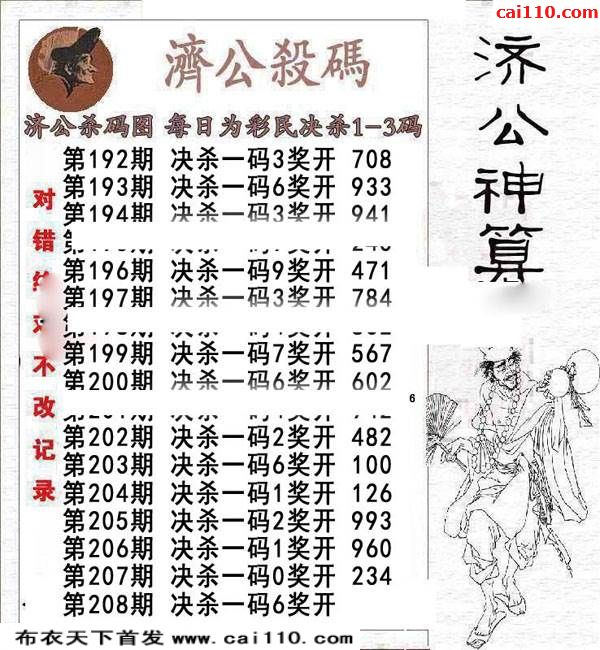 cai110.com
濟公殺碼
济公神算
济公杀码图 每日为彩民决杀1-3码
对错
不改记录
第192期 决杀一码3奖开 708
第193期 决杀一码6奖开 933
第194期 决杀一码3奖开 941
第196期 决杀一码9奖开 471
第197期 决杀一码3奖开 784
第199期 决杀一码7奖开 567
第200期 决杀一码6奖开 602
6
第202期 决杀一码2奖开 482
第203期 决杀一码6奖开 100
第204期 决杀一码1奖开 126
第205期 决杀一码2奖开 993
第206期 决杀一码1奖开 960
第207期 决杀一码0奖开 234
第208期 决杀一码6奖开
布衣天下首发 www.cai110.com